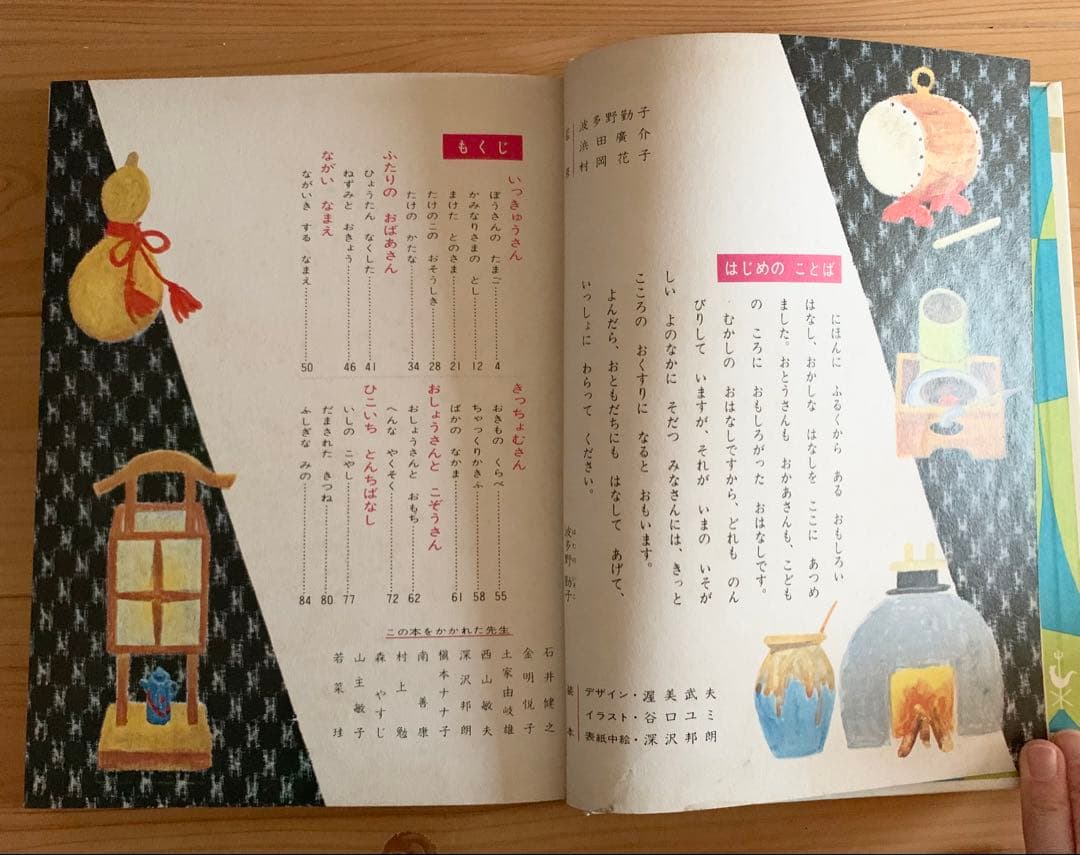 波多野勤子
浜田廣介
村岡花子
はじめの ことば
にほんに ふるくから ある おもしろい
はなし、おかしな はなしを ここに あつめ
ました。おとうさんも おかあさんも、こども
の ころに おもしろがった おはなしです。
むかしの おはなしですから、どれも のん
びりして いますが、それが いまの いそが
しい よのなかに そだつ みなさんには、きっと
こころの おくすりに なると おもいます。
よんだら、おともだちにも はなして あげて、
いっしょに わらって ください。
波多野 勤子
デザイン・渥美武夫
イラスト・谷口ユミ
表紙中絵・深沢邦朗
もくじ
いっきゅうさん
ぼうさんの たまご 4
かみなりさまの とし 12
まけた とのさま 21
たけのこの おそうしき 28
たけの かたな 34
ふたりの おばあさん
ひょうたん なくした 41
ねずみと おきょう 46
ながい なまえ
ながいき する なまえ 50
きっちょむさん
おきもの くらべ 55
ちゃっくりかきふ 58
ばかの なかま 61
おしょうさんと こぞうさん
おしょうさんと おもち 62
へんな やくそく 72
ひこいち とんちばなし
いしの こやし 77
だまされた きつね 80
ふしぎな みの 84
この本をかかれた先生
石井健之
金明悦子
土家由岐雄
西山敏夫
深沢邦朗
槇本ナナ子
南善康
村上勉
森やすじ
山主敏子
若菜珪